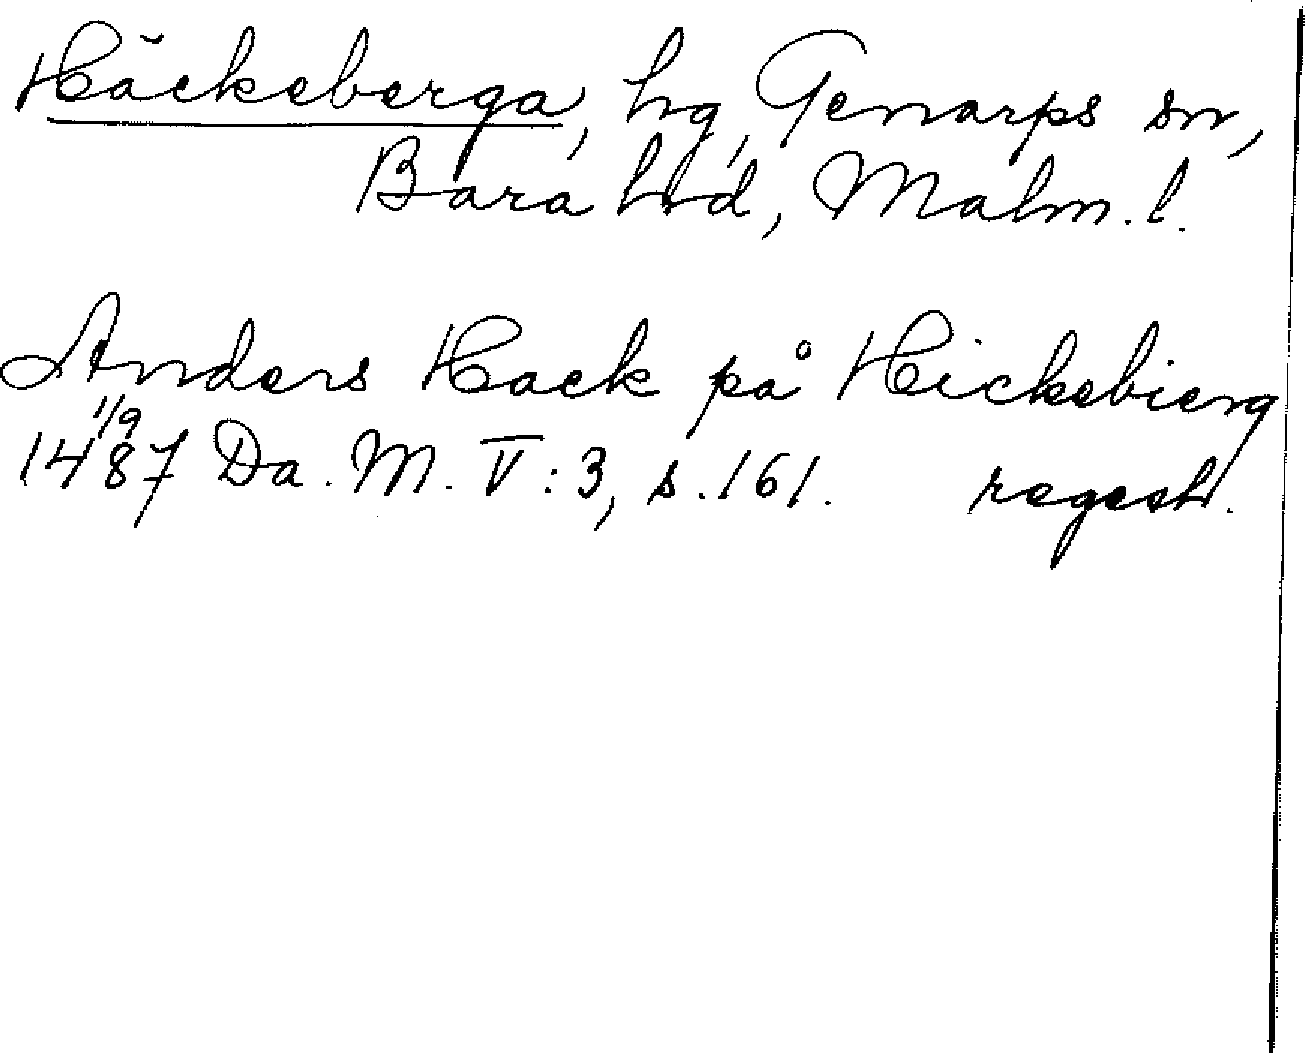 Häckeberga, hg, Genarps sn,
Bara hrd, Malm. l.
Anders Hack på Hickebierg
1/9
1487 Da. M. V:3, s. 161. regest.